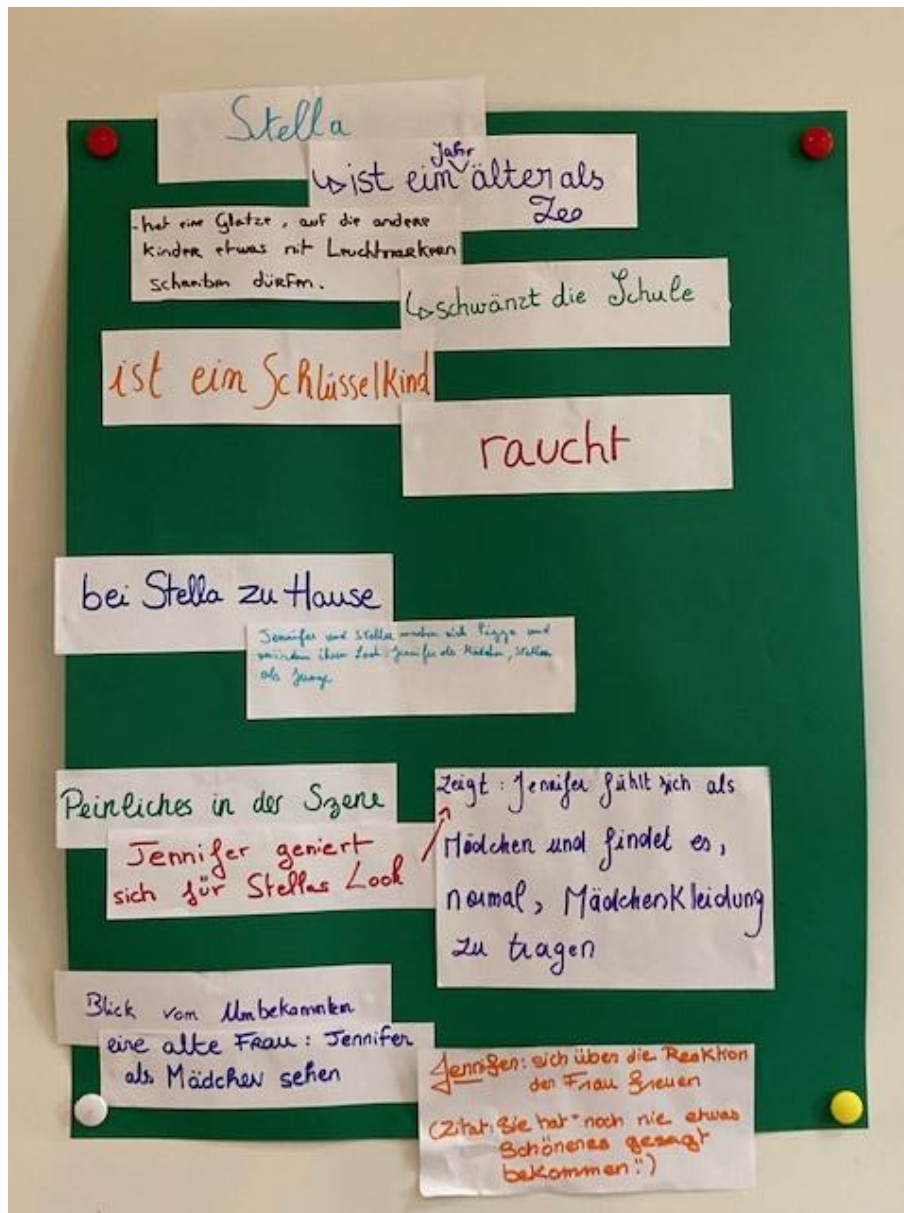 Stella
↳ ist ein Jahr älter als
Leo
- hat eine Glatze, auf die andere
Kinder etwas mit Leuchtmarkern
schreiben dürfen.
↳ schwänzt die Schule
ist ein Schlüsselkind
raucht
bei Stella zu Hause
Jennifer und Stella machen sich Pizza und
ihren Look: Jennifer als Mädchen, Stella
als Junge
Peinliches in der Szene
Jennifer geniert
sich für Stellas Look
Zeigt: Jennifer fühlt sich als
Mädchen und findet es,
normal, Mädchenkleidung
zu tragen
Blick vom Unbekannten
eine alte Frau: Jennifer
als Mädchen sehen
Jennifer: sich über die Reaktion
der Frau freuen
(Zitat: Sie hat "noch nie etwas
Schöneres gesagt
bekommen.")